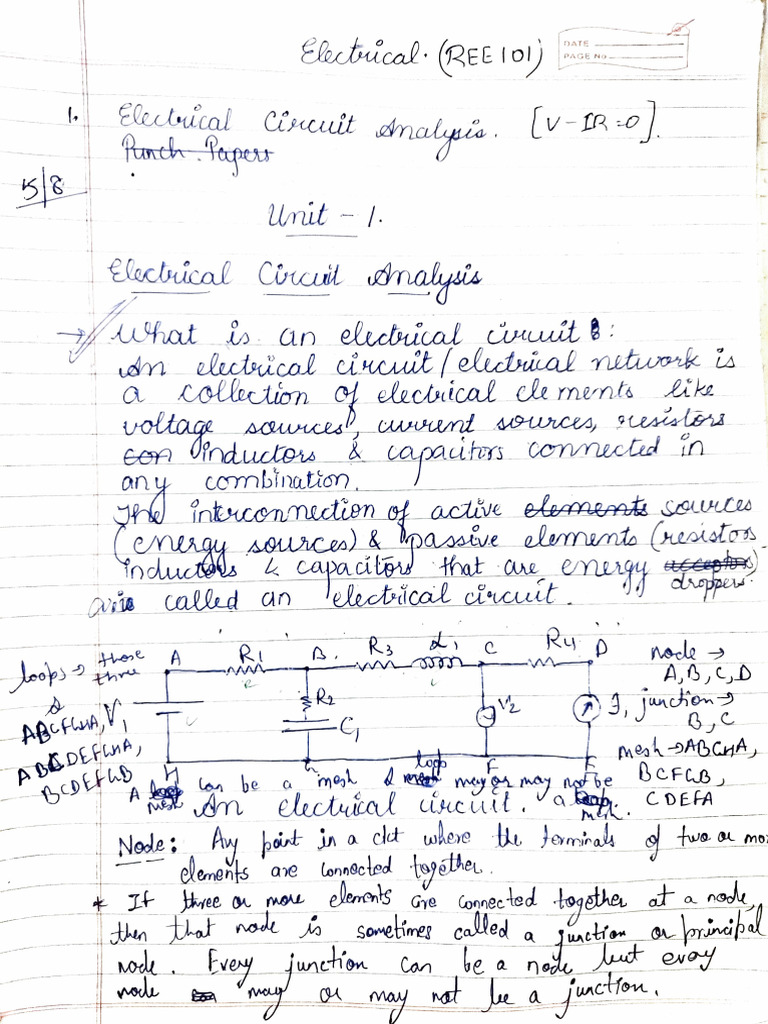 Electrical. (REE101)
DATE
PAGE No
1. Electrical Circuit Analysis. [V-IR=0].
Punch Papers
5/8
Unit - 1.
Electrical Circuit Analysis
→ What is an electrical circuit :
An electrical circuit / electrical network is
a collection of electrical elements like
voltage sources, current sources, resistors
con inductors & capacitors connected in
any combination.
The interconnection of active elements sources
(energy sources) & passive elements (resistors
inductors & capacitors that are energy acceptors)
droppers
is called an electrical circuit.
loops → those
three
&
ABCFGHA,
ABCDEFGHA,
BCDEFGB
A R1 B. R3 L1 C R4 D
V1 R2 C1 V2 I1
H G F E
node →
A, B, C, D
junction →
B, C
mesh → ABGHA,
BCFGB,
CDEFA
A loop can be a mesh & loop may or may not be
mesh
a loop.
mesh.
An electrical circuit.
Node: Any point in a ckt where the terminals of two or mo
elements are connected together.
* If three or more elements are connected together at a node,
then that node is sometimes called a junction or principal
node. Every junction can be a node but every
node may or may not be a junction.